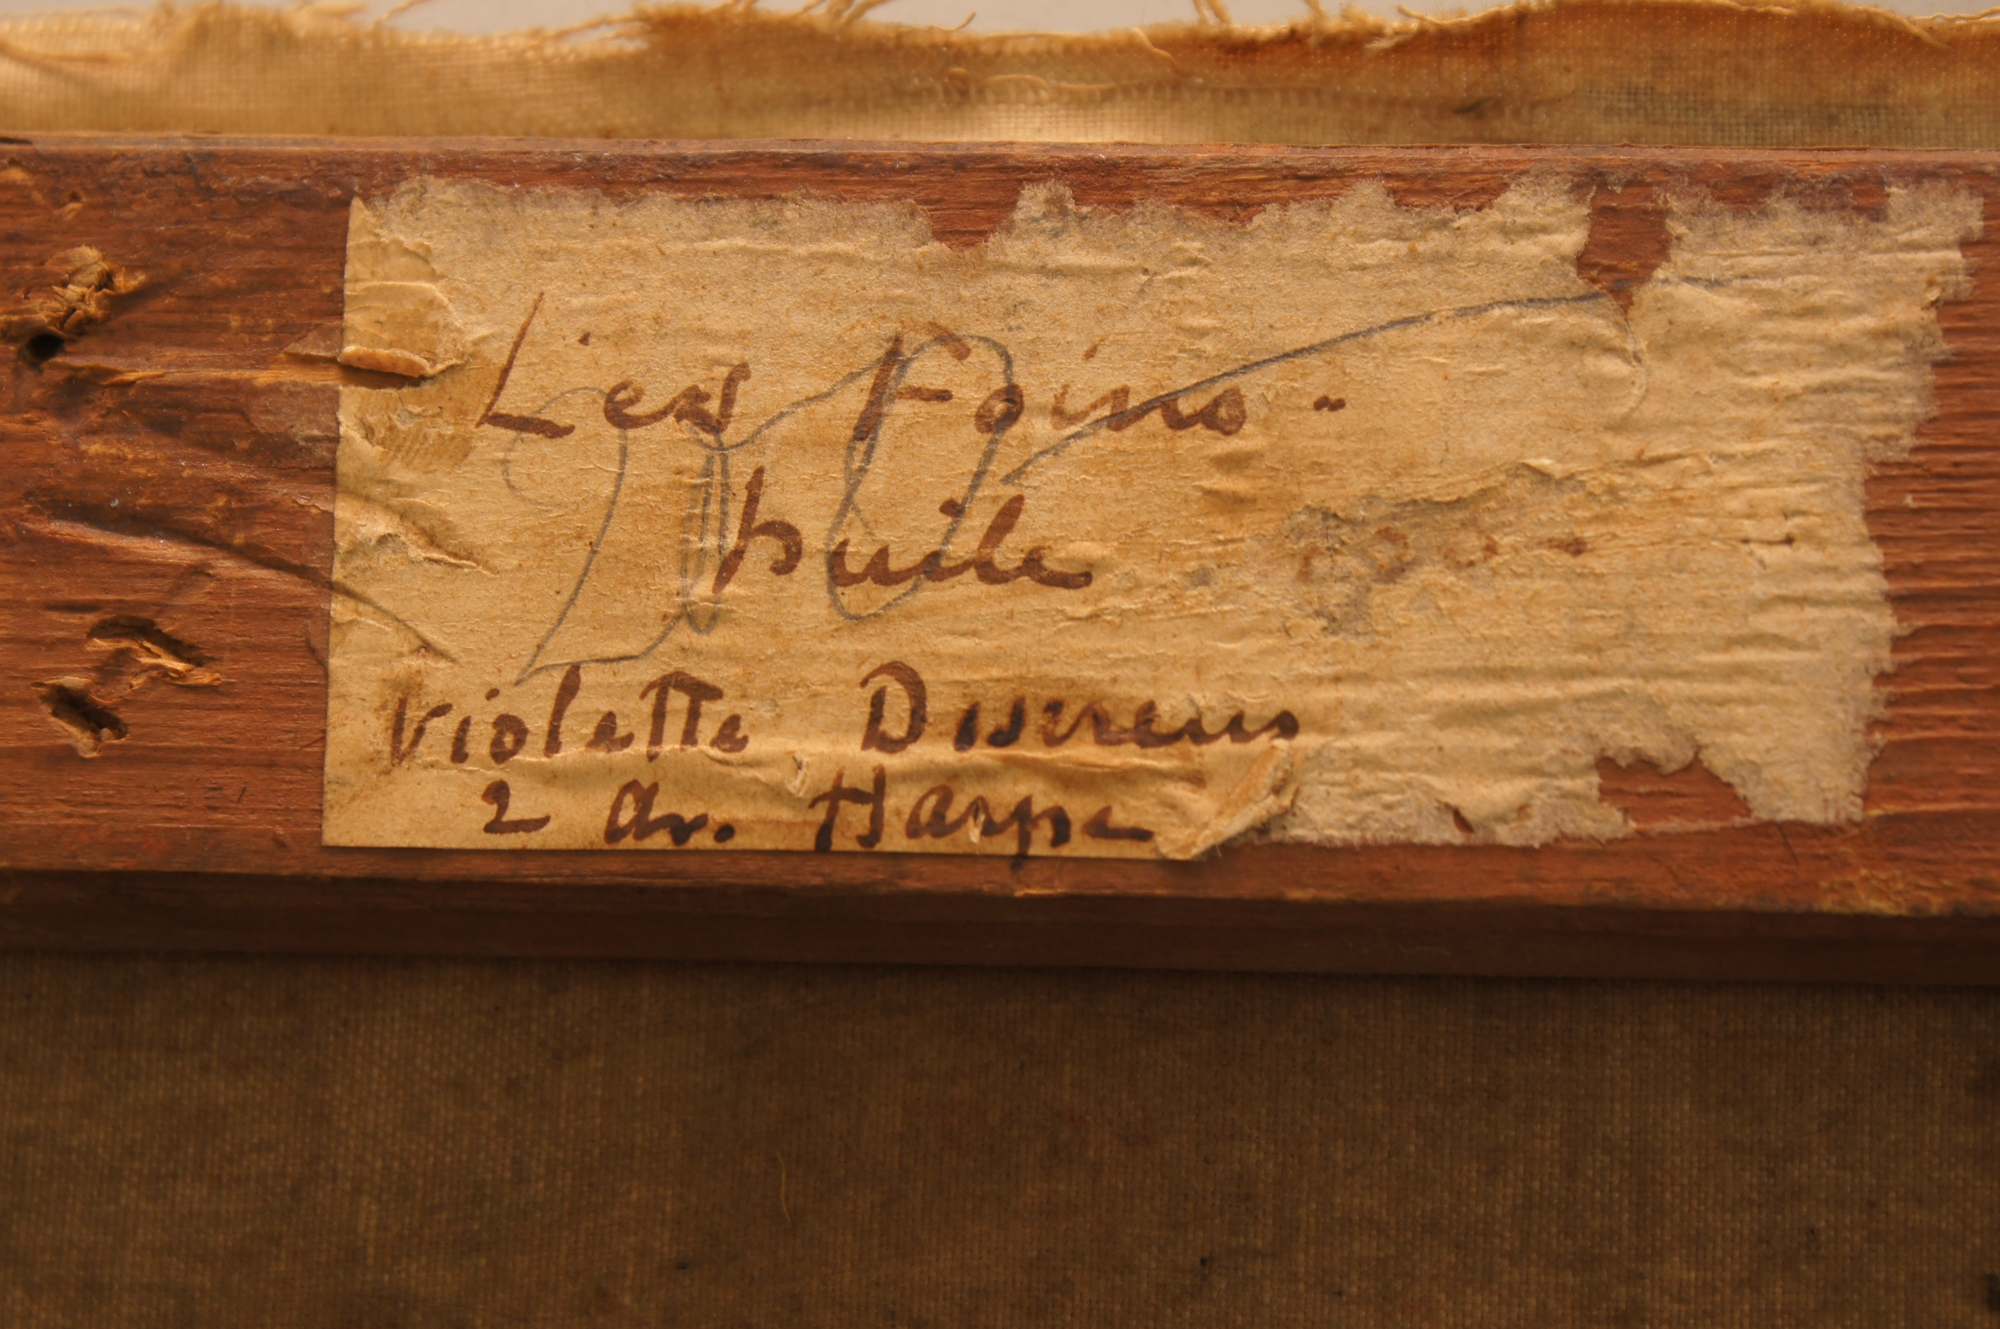 Les Foins.
huile
Violette Diserens
2 av. Harpe